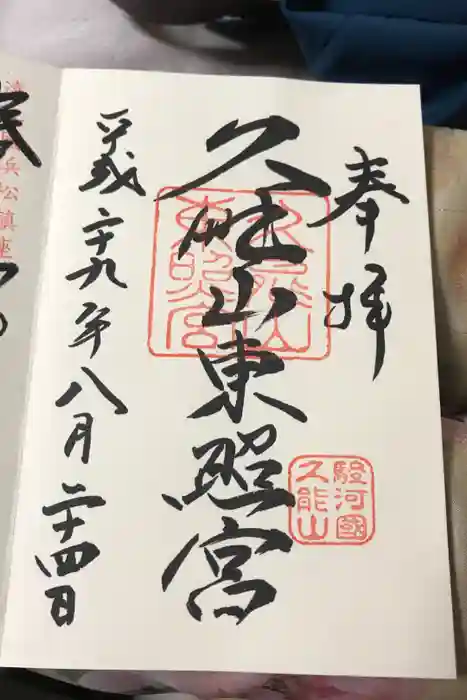 奉拝
久能山東照宮
久能山
東照宮
駿河國
久能山
平成二十九年八月二十四日
浜松鎮座